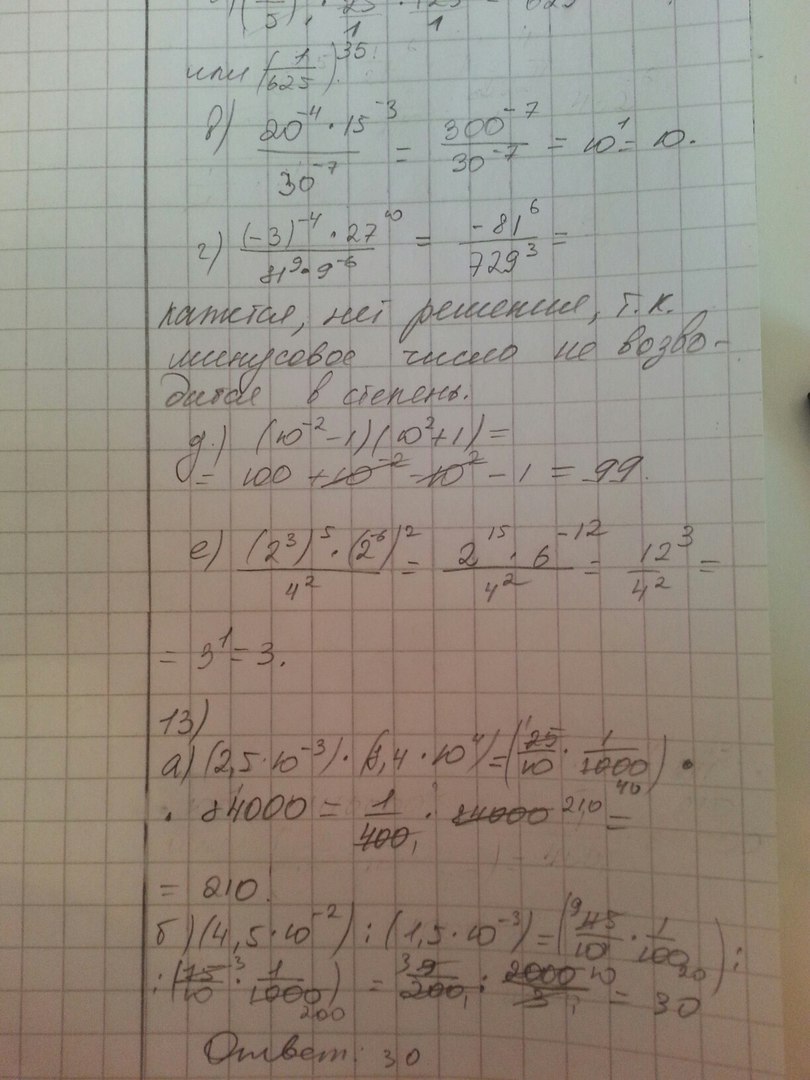 или (1/625)^35.
в) (20^-4 · 15^-3)/30^-7 = 300^-7/30^-7 = 10^1 = 10.
г) ((-3)^-4 · 27^10)/(81^9 · 9^-6) = -81^6/729^3 =
кажется, нет решения, т.к.
минусовое число не возво-
дится в степень.
д.) (10^-2 - 1)(10^2 + 1) =
= 100 + 10^-2 - 10^2 - 1 = 99.
е) ((2^3)^5 · (2^-6)^2)/4^2 = (2^15 · 6^-12)/4^2 = 12^3/4^2 =
= 3^1 = 3.
13)
а) (2,5 · 10^-3) · (8,4 · 10^4) = (25/10 · 1/1000) ·
· 84000 = 1/400 · 84000 210 =
= 210.
б) (4,5 · 10^-2) : (1,5 · 10^-3) = (45/10 · 1/100) :
: (15/10 · 1/1000) = 9/200 : 2000/3 = 30
Ответ: 30